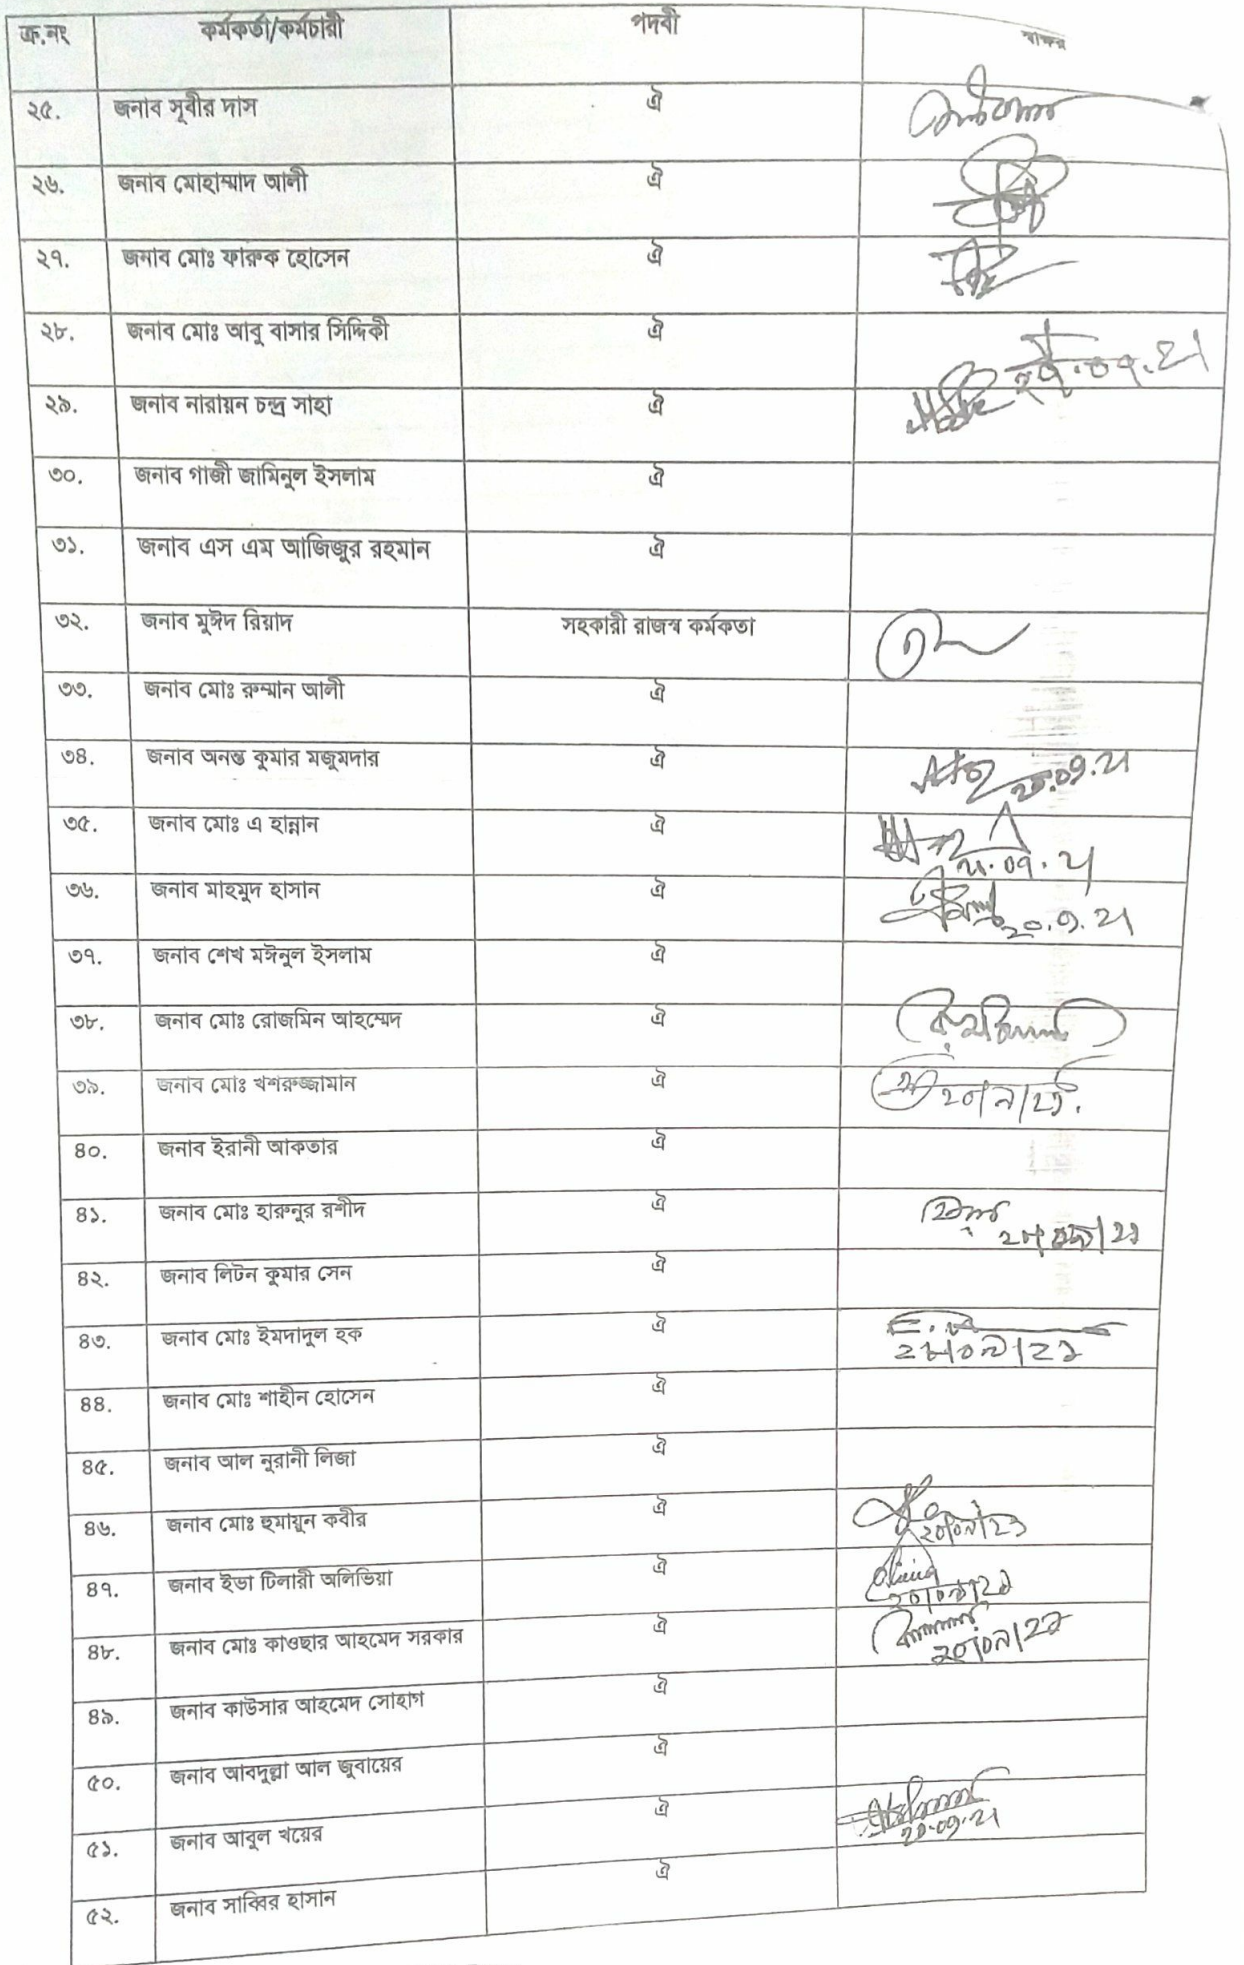 ক্র.নং কর্মকর্তা/কর্মচারী পদবী স্বাক্ষর
২৫. জনাব সুবীর দাস ঐ
২৬. জনাব মোহাম্মাদ আলী ঐ
২৭. জনাব মোঃ ফারুক হোসেন ঐ
২৮. জনাব মোঃ আবু বাসার সিদ্দিকী ঐ
২৯. জনাব নারায়ন চন্দ্র সাহা ঐ
৩০. জনাব গাজী জামিনুল ইসলাম ঐ
৩১. জনাব এস এম আজিজুর রহমান ঐ
৩২. জনাব মুঈদ রিয়াদ সহকারী রাজস্ব কর্মকতা
৩৩. জনাব মোঃ রুম্মান আলী ঐ
৩৪. জনাব অনন্ত কুমার মজুমদার ঐ
৩৫. জনাব মোঃ এ হান্নান ঐ
৩৬. জনাব মাহমুদ হাসান ঐ ২০.৯.২১
৩৭. জনাব শেখ মঈনুল ইসলাম ঐ
৩৮. জনাব মোঃ রোজমিন আহম্মেদ ঐ
৩৯. জনাব মোঃ খশরুজ্জামান ঐ ২০/৯/২১.
৪০. জনাব ইরানী আকতার ঐ
৪১. জনাব মোঃ হারুনুর রশীদ ঐ
৪২. জনাব লিটন কুমার সেন ঐ
৪৩. জনাব মোঃ ইমদাদুল হক ঐ
৪৪. জনাব মোঃ শাহীন হোসেন ঐ
৪৫. জনাব আল নুরানী লিজা ঐ
৪৬. জনাব মোঃ হুমায়ুন কবীর ঐ ২০/০৯/২১
৪৭. জনাব ইভা টিলারী অলিভিয়া ঐ ২০/০৯/২১
৪৮. জনাব মোঃ কাওছার আহমেদ সরকার ঐ ২০/০৯/২১
৪৯. জনাব কাউসার আহমেদ সোহাগ ঐ
৫০. জনাব আবদুল্লা আল জুবায়ের ঐ
৫১. জনাব আবুল খয়ের ঐ ২০.০৯.২১
৫২. জনাব সাব্বির হাসান ঐ